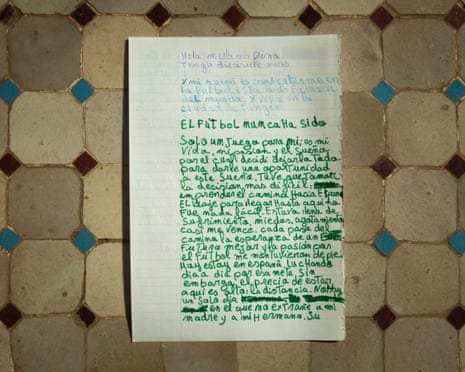 Hola, me llamo Doha
Tengo diecisiete años
Y mi sueño es convertirme en
la futbolista más famosa
del mundo. Y vivo en la
ciudad de Tanger
EL FÚTBOL nunca Ha Sido
Solo un juego para mí: es mi
Vida, mi pasión y el sueño
por el cual decidí dejarlo todo
para darle una oportunidad
a este Sueño. Tuve que tomar
la decisión más difícil:
emprender el camino Hacia España
El viaje para llegar Hasta aquí no
Fue nada fácil. Estuvo lleno de
Sufrimiento, miedo, agotamiento
casi me vence. cada paso del
camino la esperanza de un
Futuro mejor y la pasión por
el FÚTBOL me mantuvieron de pie.
Hoy estoy en españa Luchando
día a día por esa meta. Sin
embargo, el precio de estar
aquí es alto: la distancia. No hay
un solo día
en el que no extrañe a mi
madre y a mi Hermana. Su